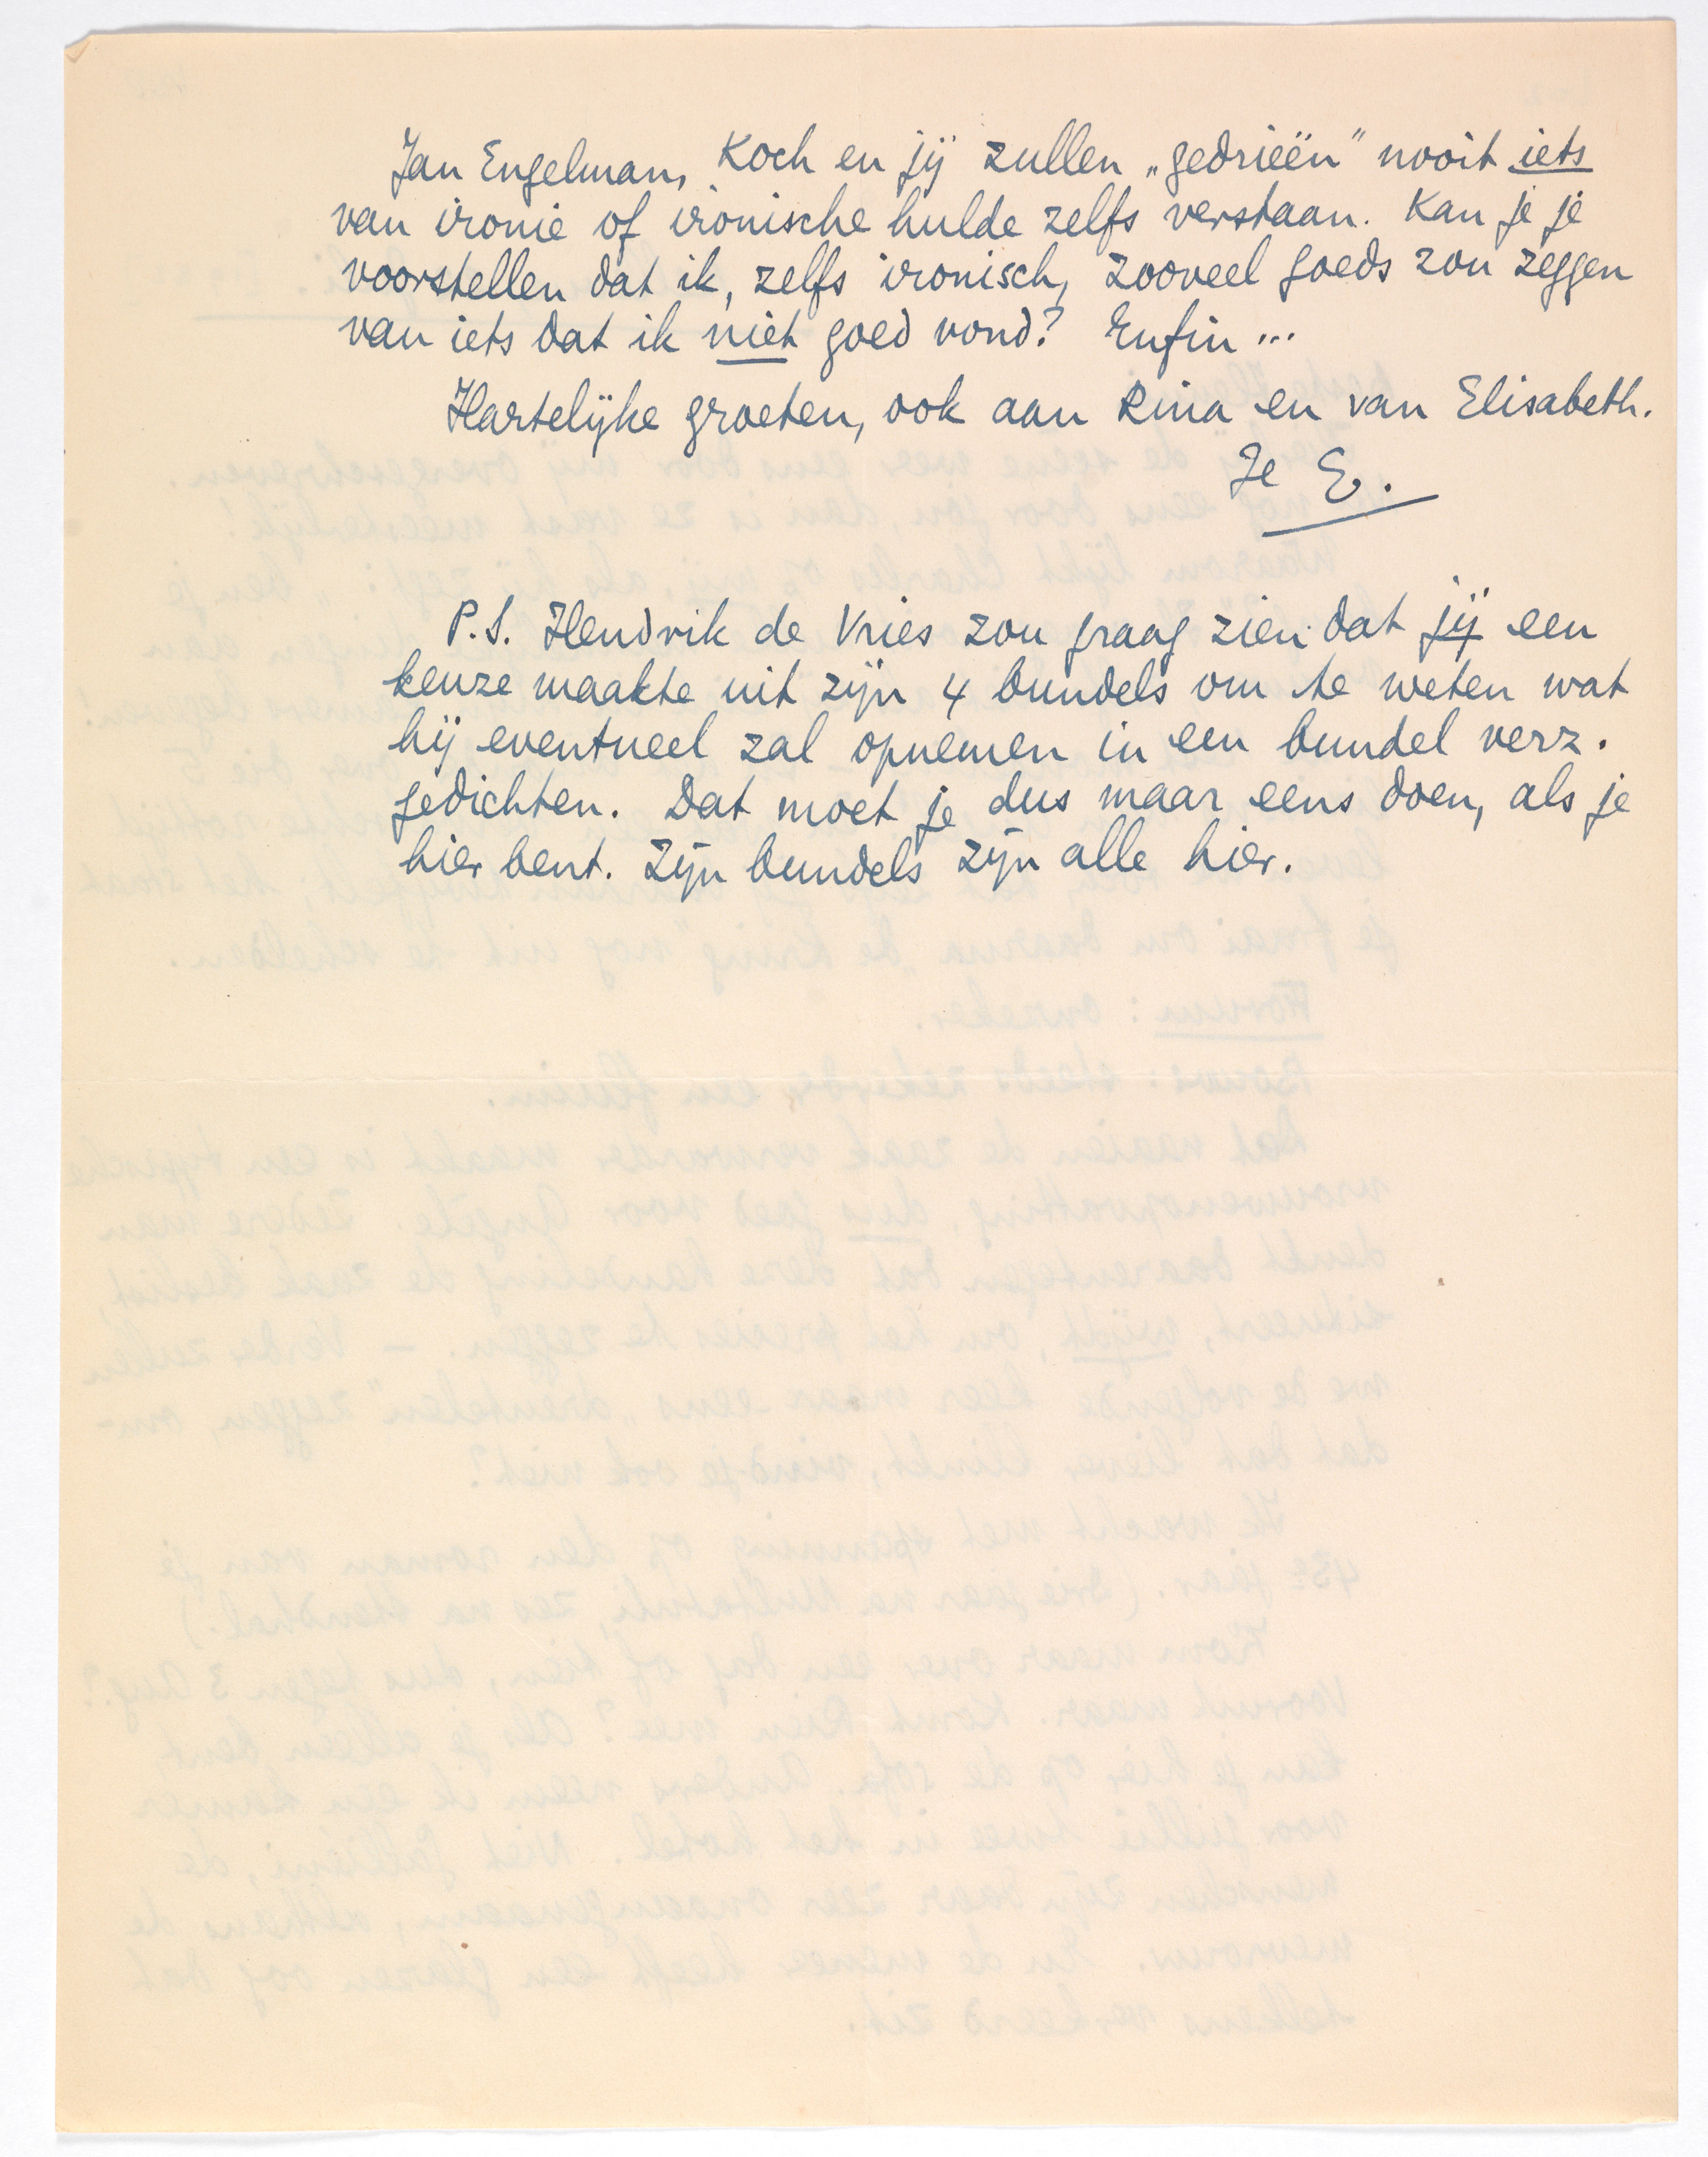 Jan Engelman, Koch en jij zullen „gedrieën” nooit iets
van ironie of ironische hulde zelfs verstaan. Kan je je
voorstellen dat ik, zelfs ironisch, zooveel goeds zou zeggen
van iets dat ik niet goed vond? Enfin ...
Hartelijke groeten, ook aan Rina en van Elisabeth.
Je E.
P.S. Hendrik de Vries zou graag zien dat jij een
keuze maakte uit zijn 4 bundels om te weten wat
hij eventueel zal opnemen in een bundel verz.
gedichten. Dat moet je dus maar eens doen, als je
hier bent. Zijn bundels zijn alle hier.